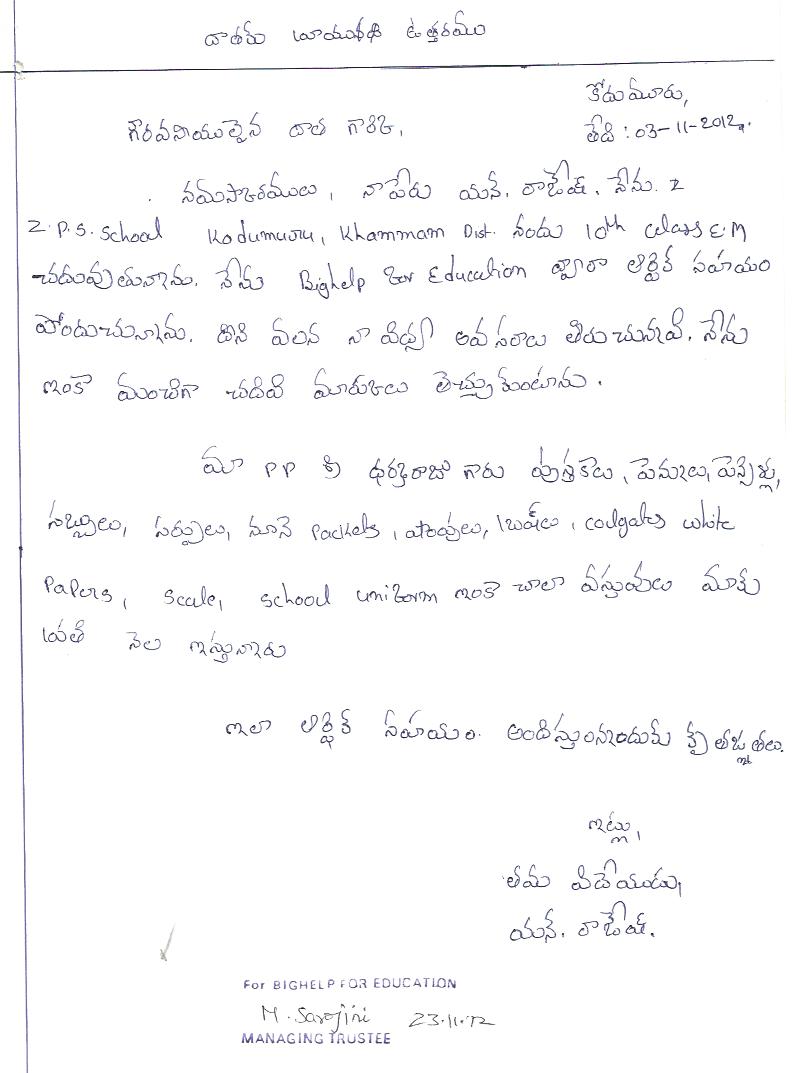 దాతకు రాయుచున్న ఉత్తరము
కోదుమూరు,
గౌరవనీయులైన దాత గారికి,
తేది : 03-11-2012.
నమస్కారములు, నా పేరు యన్. రాజేష్. నేను. Z
Z.P.S. School Kodumuru, Khammam Dist. నందు 10th class E.M
చదువుతున్నాను. నేను Bighelp for Education ద్వారా ఆర్థిక సహయం
పొందుచున్నాను. దాని వలన నా విద్య అవసరాలు తిరుచున్నవి. నేను
ఇంకా మంచిగా చదివి మారుకులు తెచ్చుకుంటాను.
మా PP శ్రీ ధర్మరాజు గారు పుస్తకలు, పెనులు, పెన్సిళ్లు,
సబ్బులు, సర్పులు, నూనె Packets, షాంపులు, బ్రష్‌లు, colgates white
Papers, Scale, School uniform ఇంకా చాలా వస్తువులు మాకు
ప్రతి నెల ఇస్తున్నారు
ఇలా ఆర్థిక సహయం. అందిస్తుంన్నందుకు కృతజ్ఞతలు.
ఇట్లు,
తమ విదేయుడు,
యన్. రాజేష్.
For BIGHELP FOR EDUCATION
M. Sarojini 23.11.12
MANAGING TRUSTEE